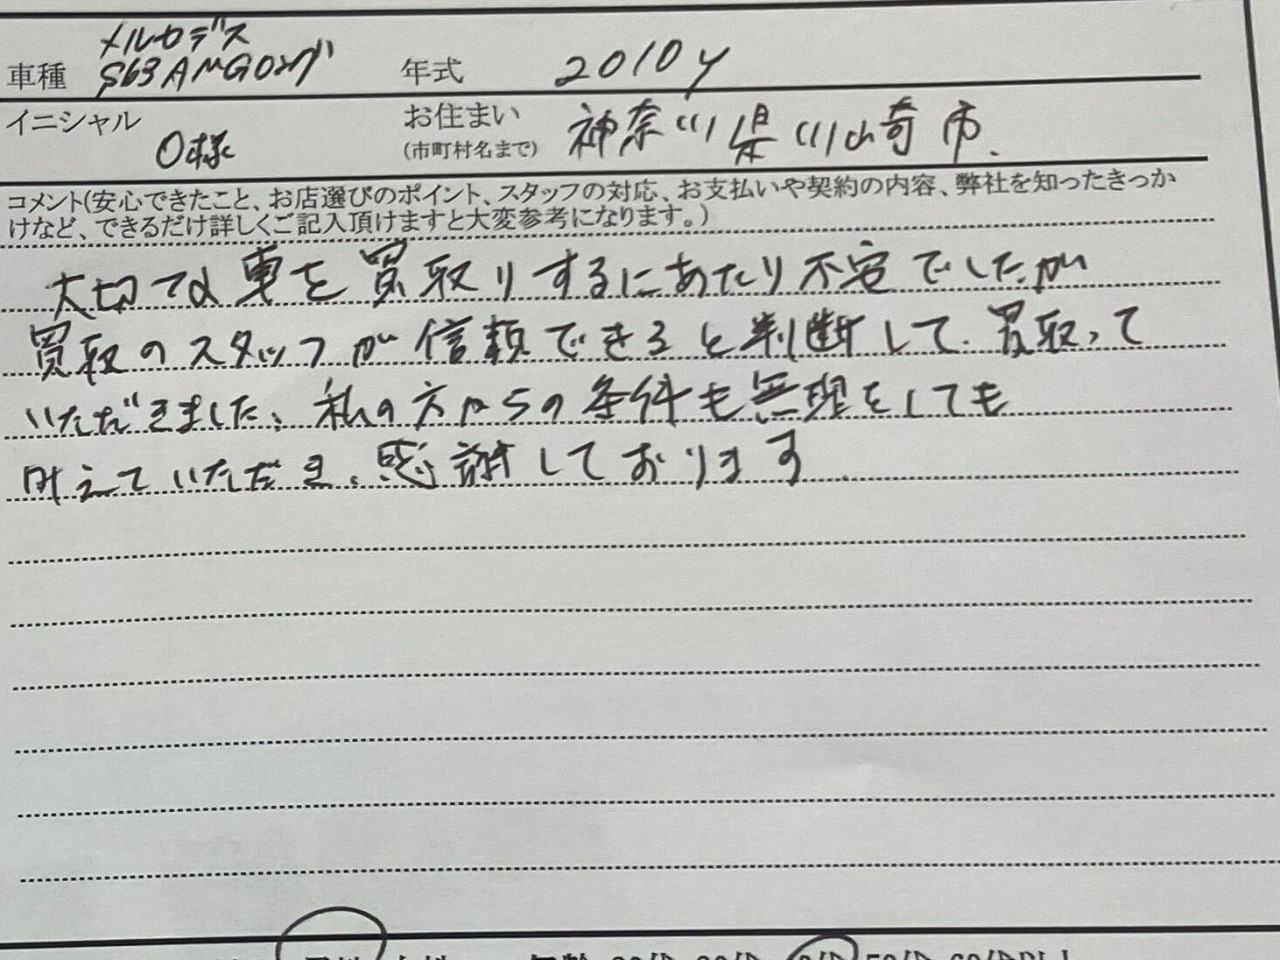 車種 メルセデス S63 AMGロング 年式 2010y
イニシャル O様 お住まい (市町村名まで) 神奈川県川崎市.
コメント(安心できたこと、お店選びのポイント、スタッフの対応、お支払いや契約の内容、弊社を知ったきっか
けなど、できるだけ詳しくご記入頂けますと大変参考になります。)
大切な車を買取りするにあたり不安でしたが
買取のスタッフが信頼できると判断して、買取って
いただきました。私の方からの条件も無理をしても
叶えていただき、感謝しております